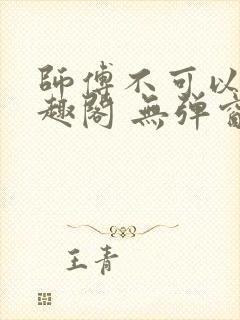 師傅不可以
趣閣 無弹窗
王青